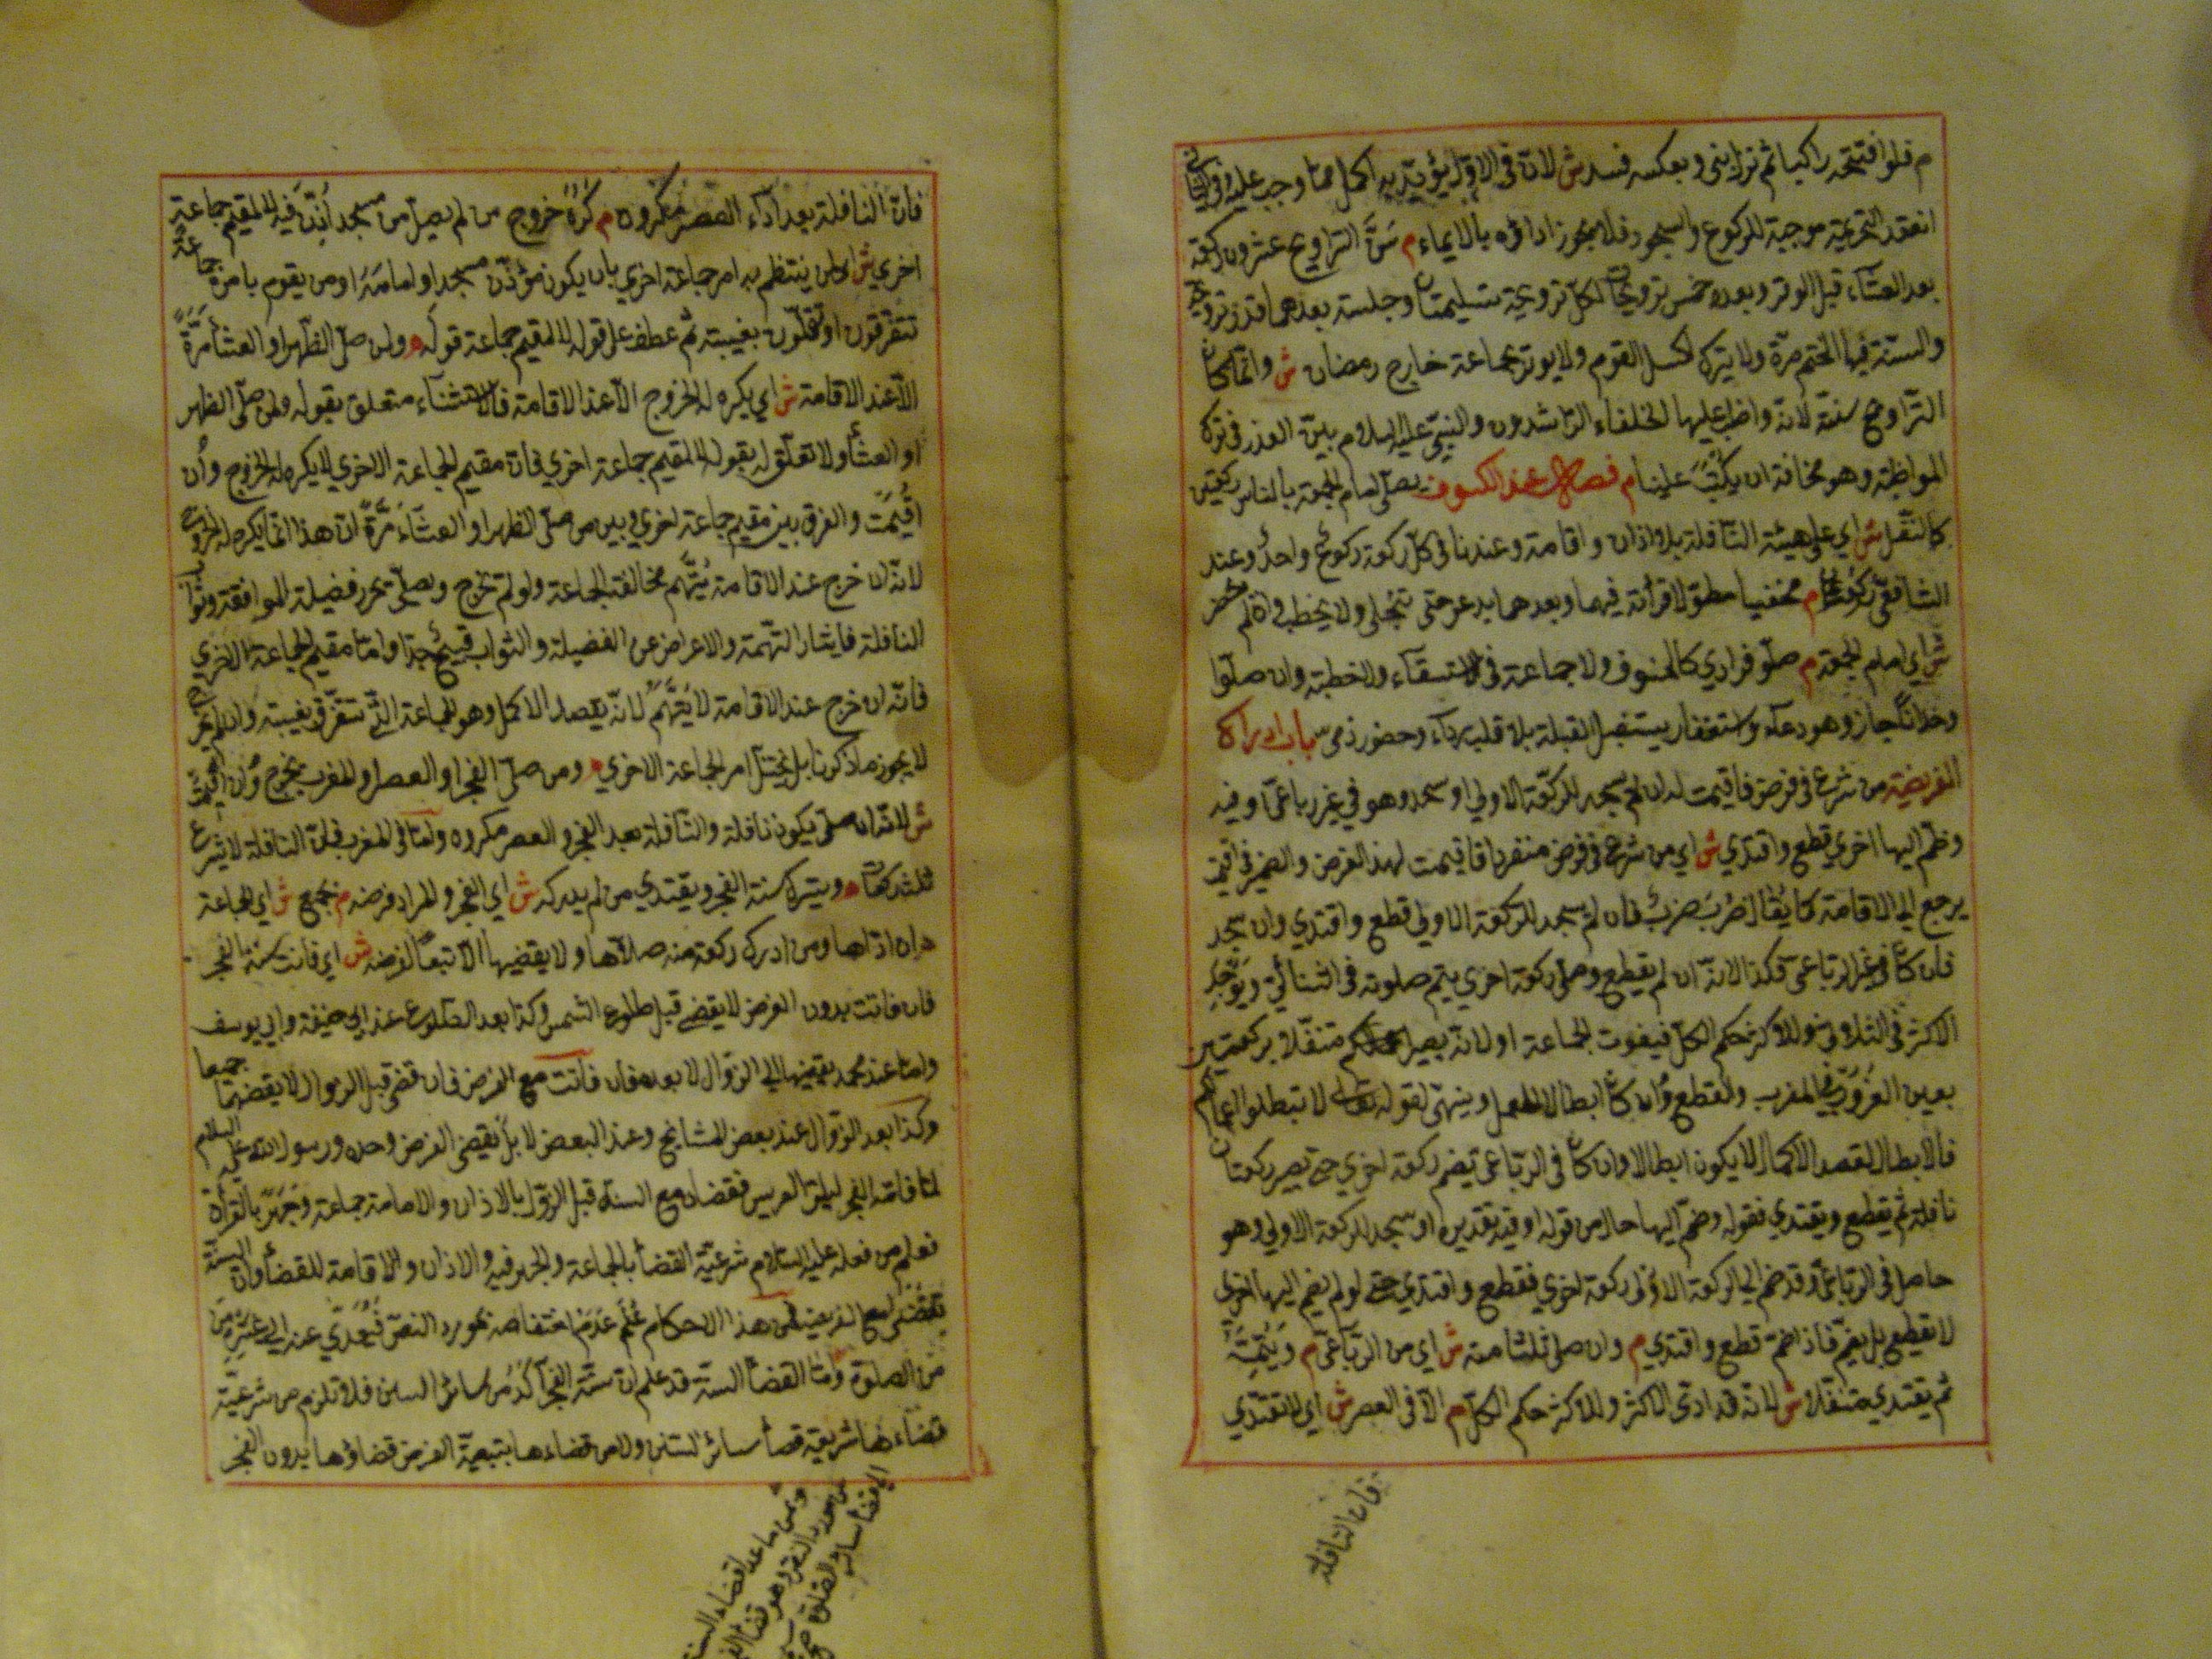 م فلو افتتحه راكبا ثم نزل بنى وبعكسه فسد ش لان في الاول يؤديه اكمل مما وجب عليه وفي الثاني
انعقد التحريمة موجبة للركوع والسجود فلا يجوز اداؤه بالايماء م سن التراويح عشرون ركعة
بعد العشاء قبل الوتر وبعده خمس ترويحات لكل ترويحة تسليمتان وجلسة بعدهما قدر ترويحة
والسنة فيها الختم مرة ولا يترك لكسل القوم ولا يوتر بجماعة خارج رمضان ش وانما كان
التراويح سنة لانه واظب عليها الخلفاء الراشدون والنبي عليه السلام بين العذر في ترك
المواظبة وهو مخافة ان يكتب علينا م فصل عند الكسوف يصلي امام الجمعة بالناس ركعتين
كالنفل ش اي على هيئة النافلة بلا اذان واقامة وعندنا في كل ركعة ركوع واحد وعند
الشافعي ركوعان م مخفيا مطولا قرأته فيهما وبعدهما يدعو حتى تنجلي ولا يخطب وان لم يحضر
ش اي امام الجمعة م صلوا فرادي كالخسوف ولا جماعة في الاستسقاء ولا خطبة وان صلوا
وحدانا جاز وهو دعاء واستغفار يستقبل القبلة بلا قلب رداء وحضور ذمي باب ادراك
الفريضة من شرع في فرض فاقيمت له ان لم يسجد للركعة الاولي او سجد وهو في غير رباعي او فيه
وضم اليها اخري قطع واقتدي ش اي من شرع في فرض منفردا فاقيمت لهذا الفرض والضمير في اقيمت
يرجع الي الاقامة كما يقال ضرب ضرب فان لم يسجد للركعة الاولي قطع واقتدي وان سجد
فان كان في غير الرباعي فكذا لانه ان لم يقطع وصلي ركعة اخري يتم صلوته في الثنائي ويوجد
الاكثر في الثلاثي وللاكثر حكم الكل فيفوت الجماعة او لانه يصير متنفلا بركعتين
بعد الغروب في المغرب والقطع وان كان ابطالا للعمل وينهى لقوله تعالى لا تبطلوا اعمالكم
فالابطال لقصد الاكمال لا يكون ابطالا وان كان في الرباعي يضم ركعة اخري حتى تصير ركعتان
نافلة ثم يقطع ويقتدي فقوله وضم اليها حال من قوله او فيه تقديره او سجد للركعة الاولي وهو
حاصل في الرباعي وقد ضم الي الركعة الاولى ركعة اخري فقطع واقتدي حتى لو لم يضم اليها اخري
لا يقطع بل يضم فاذا ضم قطع واقتدي م وان صلى ثلثا منه ش اي من الرباعي م ويتمه
ثم يقتدي متنفلا ش لانه قد ادى الاكثر وللاكثر حكم الكل م الا في العصر ش اي لا يقتدي
فان النافلة
فان النافلة بعد اداء العصر مكروه م كره خروج من لم يصل من مسجد اذن فيه لا لمقيم جماعة
اخري ش اي لمن ينتظم به امر جماعة اخري بان يكون مؤذن مسجد او امامه او من يقوم بامره جماعة
تتفرقون او تقلون بغيبته ثم عطف على قوله لا لمقيم جماعة قوله م ولمن صلى الظهر او العشاء مرة
الا عند الاقامة ش اي يكره له الخروج الا عند الاقامة فالاستثناء متعلق بقوله ولمن صلى الظهر
او العشأ ولا تعلق له بقوله لا لمقيم جماعة اخري فان مقيم الجماعة الاخري لا يكره له الخروج وان
اقيمت والفرق بين مقيم جماعة اخري وبين من صلى الظهر او العشاء مرة ان هذا انما يكره له الخروج
لانه ان خرج عند الاقامة يتهم مخالفة الجماعة ولو لم يخرج ويصلي يحرز فضيلة الموافقة وثواب
النافلة فايثار التهمة والاعراض عن الفضيلة والثواب قبيح جدا واما مقيم الجماعة الاخري
فانه ان خرج عند الاقامة لا يتهم لانه يقصد الاكمل وهو الجماعة التي تتفرق بغيبته وان لم يخرج
لا يحرز ما ذكرنا بل يختل امر الجماعة الاخري م ومن صلى الفجر او العصر او المغرب يخرج وان اقيمت
ش لانه ان صلى يكون نافلة والنافلة بعد الفجر والعصر مكروه واما في المغرب فلان النافلة لا تشرع
ثلث ركعات م ويترك سنة الفجر ويقتدي من لم يدركه ش اي الفجر والمراد فرضه م بجمع ش اي بجماعة
م ان اداها ومن ادرك ركعة منه صلاها ولا يقضيها الا تبعا لفرضه ش اي فانت سنة الفجر
فان فاتت بدون الفرض لا يقضي قبل طلوع الشمس وكذا بعد الطلوع عند ابي حنيفة وابي يوسف
واما عند محمد يقضيها الي الزوال لا بعده وان فاتت مع الفرض فان قضي قبل الزوال يقضيهما جميعا
وكذا بعد الزوال عند بعض المشايخ وعند البعض لا بل يقضي الفرض وحده ورسول الله عليه السلام
لما فاته الفجر ليلة التعريس فقضاه مع السنة قبل الزوال بالاذان والاقامة جماعة وجهر بالقرأة
فعلم من فعله عليه السلام شرعية القضأ بالجماعة والجهر فيه والاذان والاقامة للقضأ وان السنة
تقضى مع الفريضة فمن هذا الاحكام علم عدم اختصاصه بمورد النص فيعدي عنه الي غيره من
من الصلوة واما القضأ السنة قد علم ان سنة الفجر آكد من سائر السنن فلا تلزم من شرعية
قضاءها شرعية قضأ سائر السنن ولا من قضاءها بتبعية الفرض قضاؤها بدون الفجر